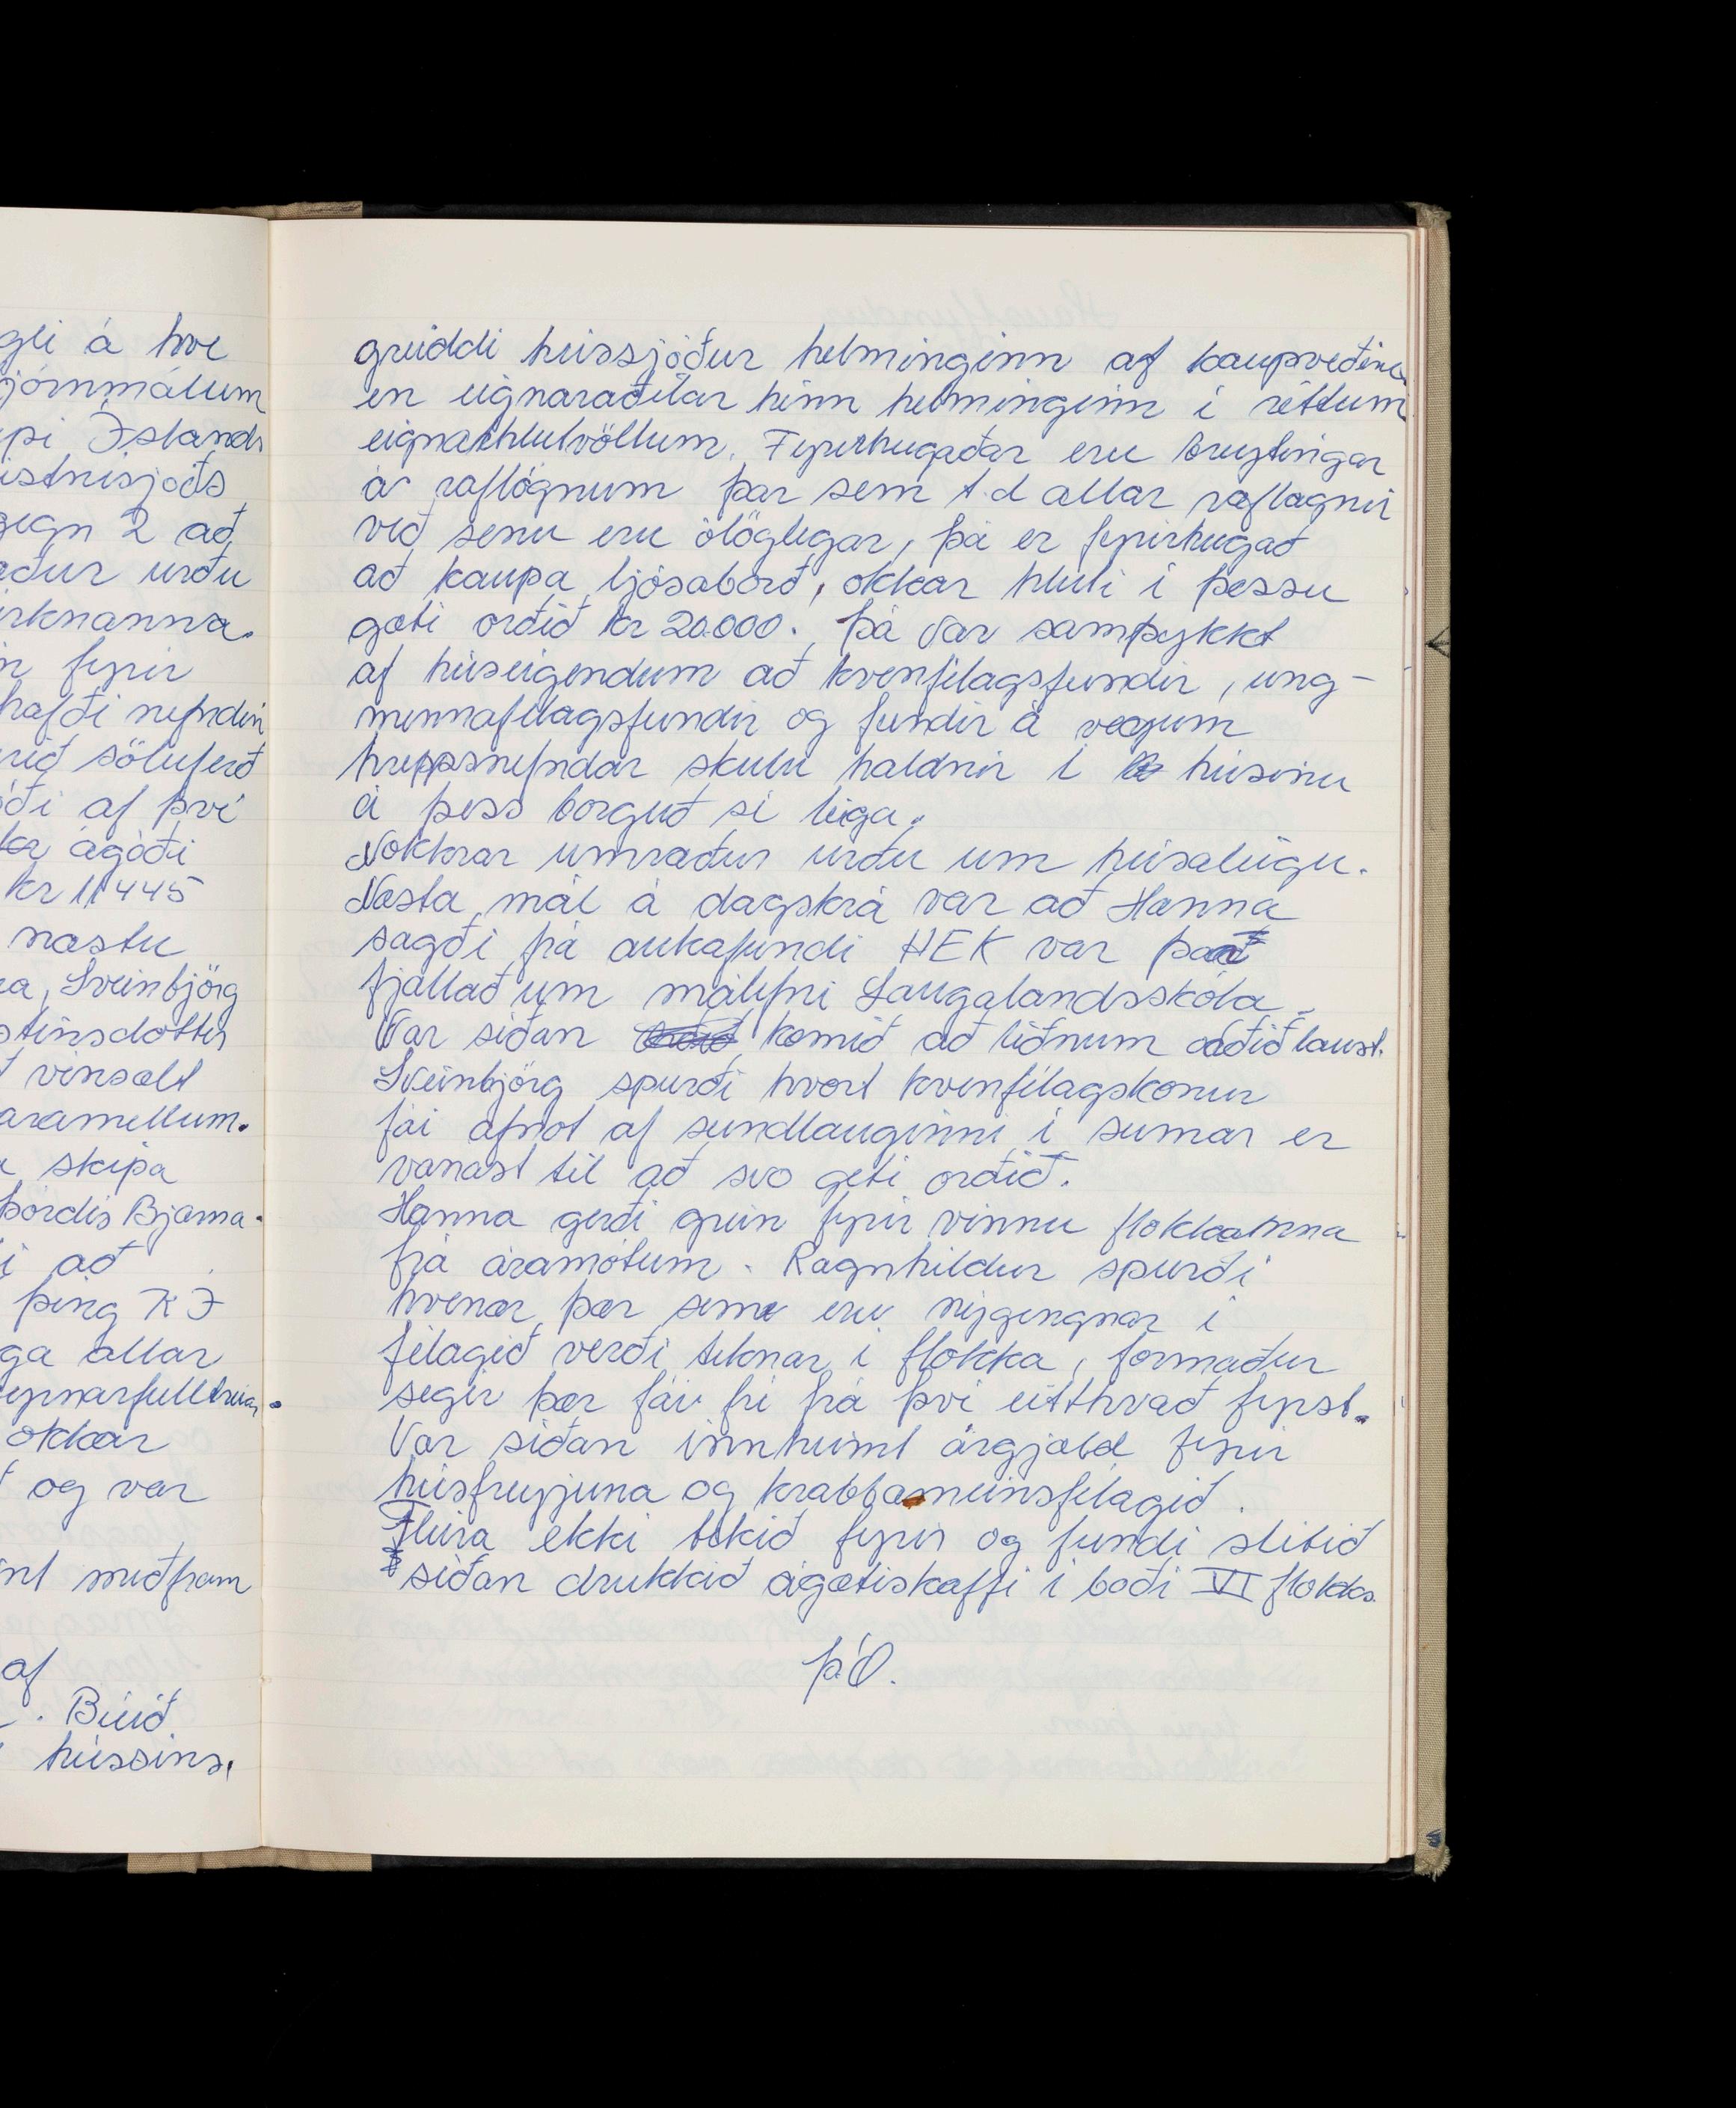 gli á hve
jórnmálum
pi Íslands
istnisjóðs
gegn 2 að
æður urðu
irknanna.
n fyrir
hafði nefndin
rið söluferð
óði af því
kr ágóði
kr 11445
næstu
ra, Sveinbjörg
steinsdóttir
vinsælt
aramellum.
skipa
Þórdís Bjarna-
i að
þing KÍ
ga allar
yrnarfulltrúar.
okkar
og var
nt meðfram
af
. Búið
hússins,
greiddi hússjóður helminginn af kaupverðinu
en eignaraðilar hinn helminginn í réttum
eignarhlutvöllum. Fyrirhugaðar eru breytingar
á raflögnum þar sem t.d allar raflagnir
við senu eru ólöglegar, þá er fyrirhugað
að kaupa ljósaborð, okkar hluti í þessu
gæti orðið kr 20.000. Þá var samþykkt
af húseigendum að kvenfélagsfundir, ung-
mennafélagsfundir og fundir á vegum
hreppsnefndar skulu haldnir í húsinu
á þess borguð sé leiga.
Nokkrar umræður urðu um húsaleigu.
Næsta mál á dagskrá var að Hanna
sagði frá aukafundi HEK var það
fjallað um málefni Laugalandsskóla.
Var síðan komið að liðnum orðið laust.
Sveinbjörg spurði hvort kvenfélagskonur
fái afnot af sundlauginni í sumar er
vonast til að svo geti orðið.
Hanna gerði grein fyrir vinnu flokkanna
frá áramótum. Ragnhildur spurði
hvenær þær sem eru nýgengnar í
félagið verði teknar í flokka, formaður
segir þær fái frí frá því eitthvað fyrst.
Var síðan innheimt árgjald fyrir
húsfreyjuna og krabbameinsfélagið.
Fleira ekki tekið fyrir og fundi slitið
síðan drukkið ágætiskaffi í boði VI flokks.
Þ.Ó.